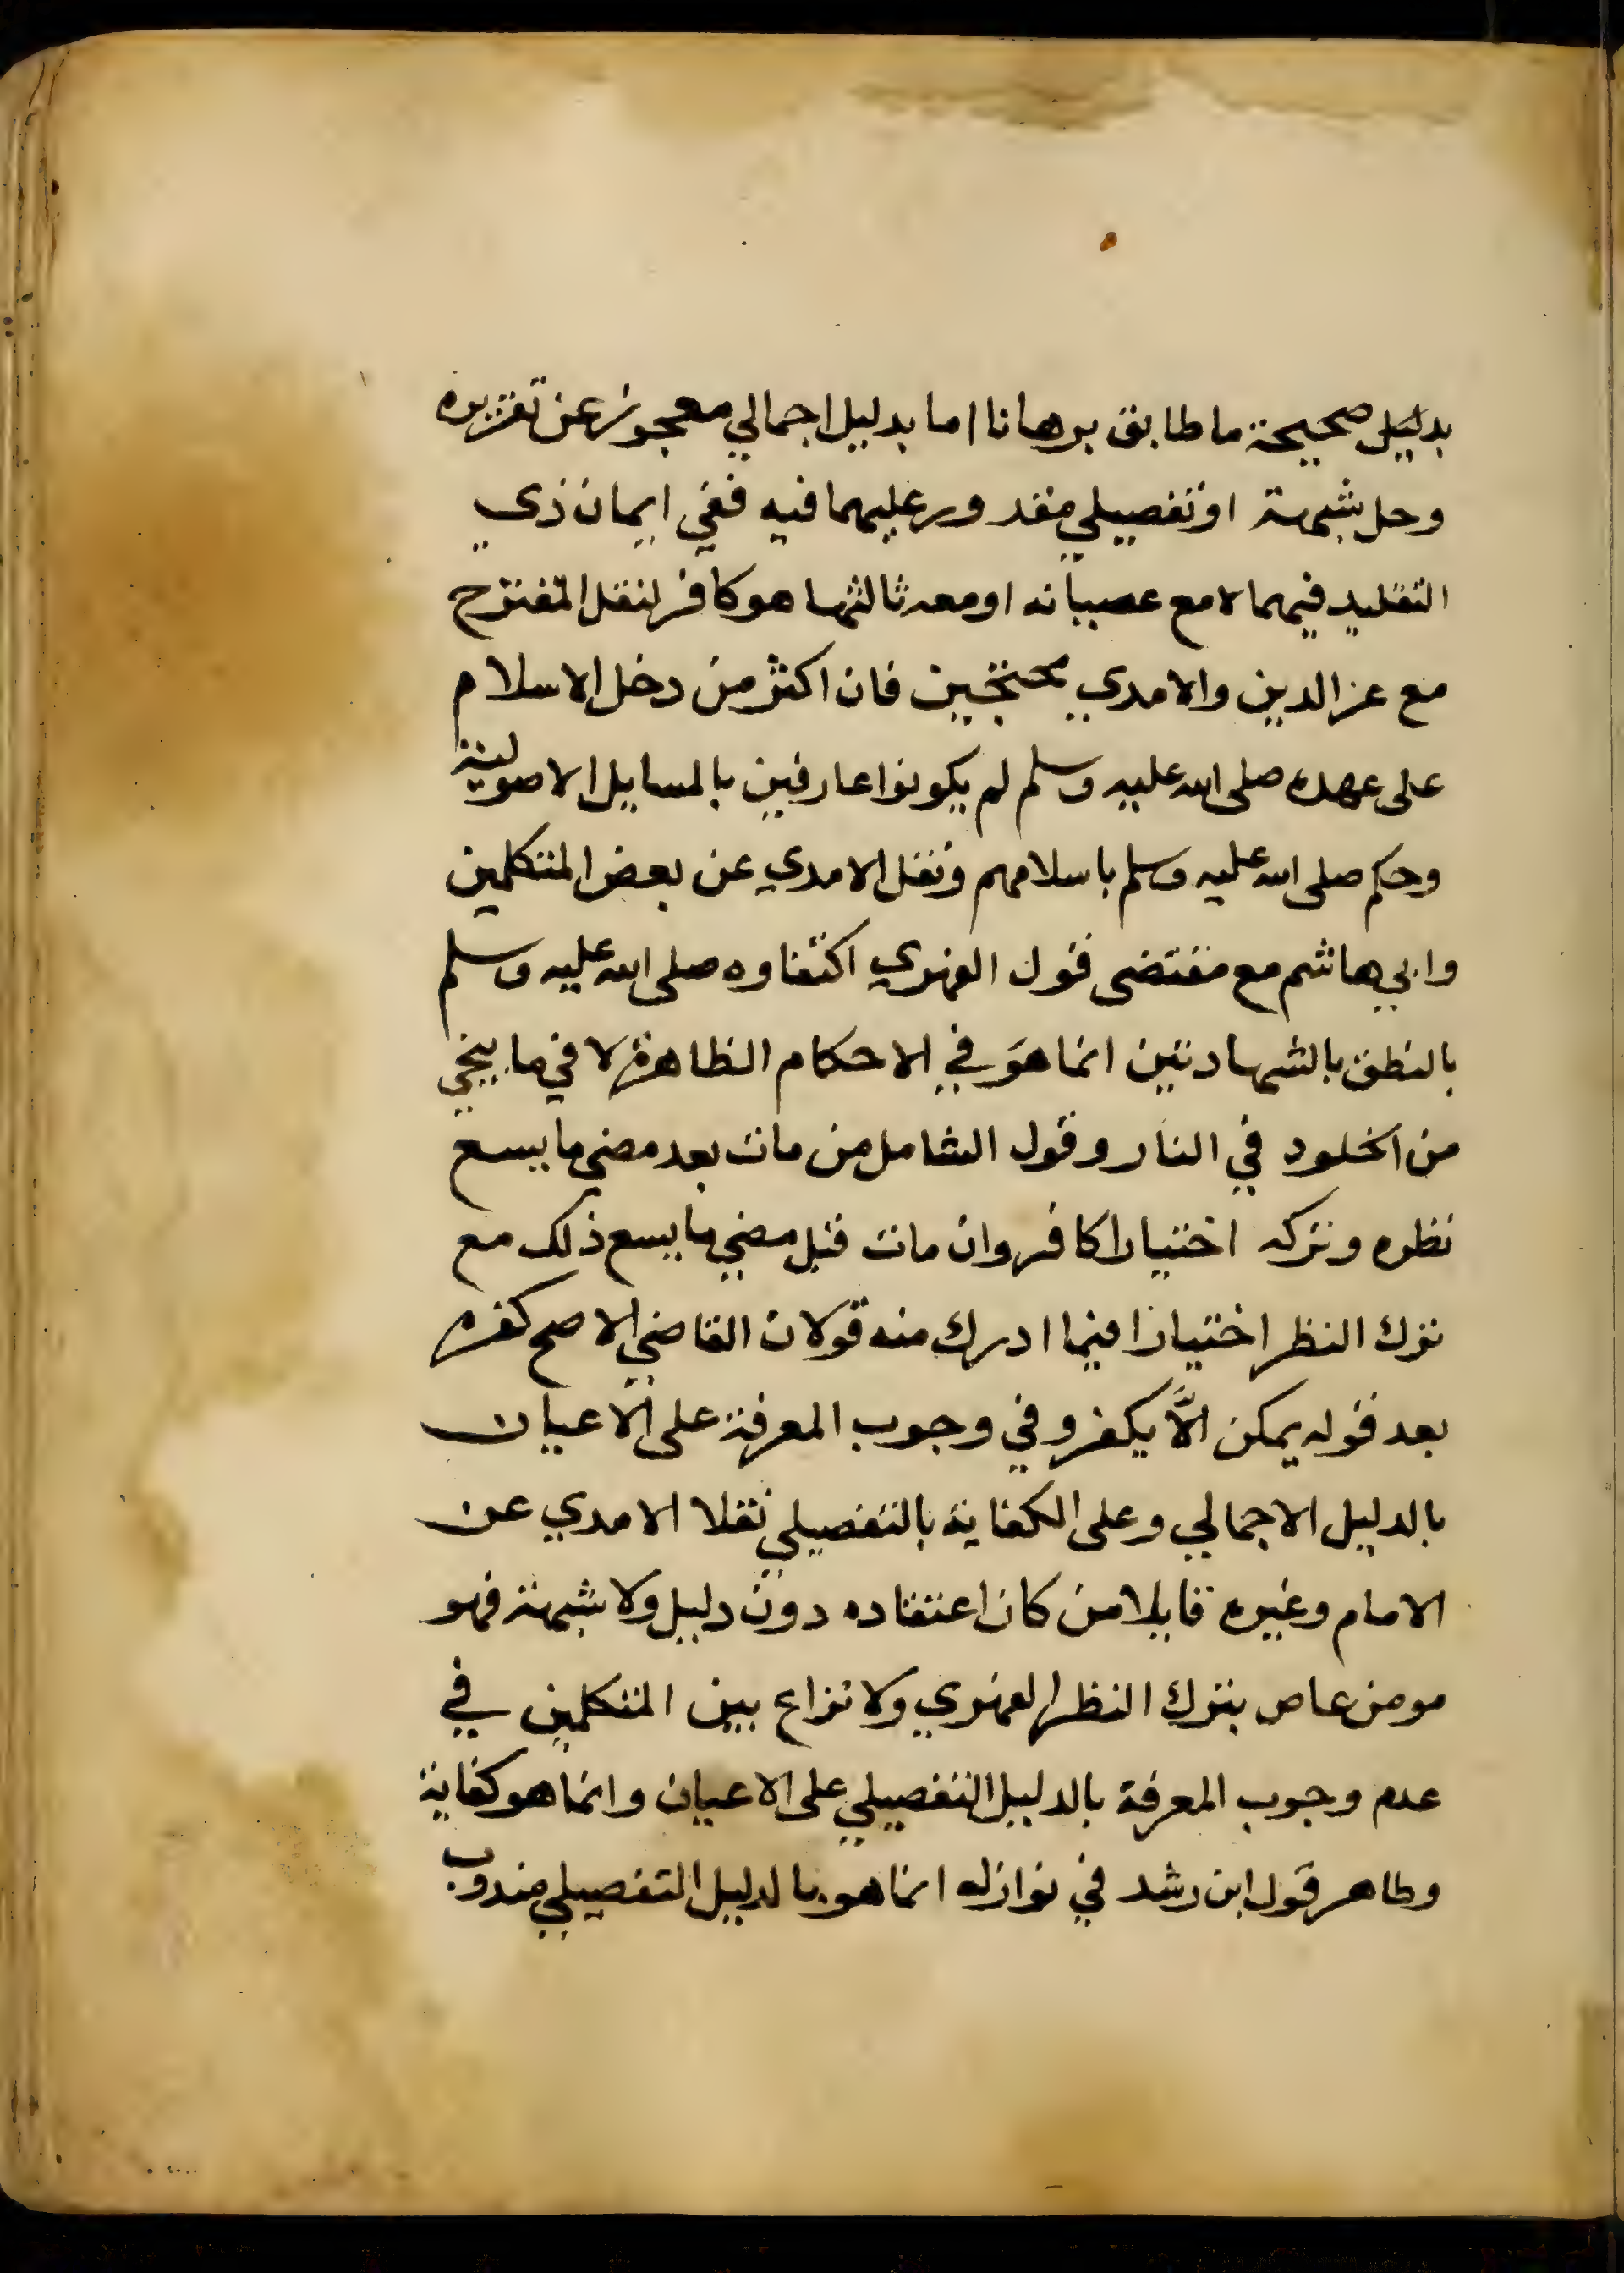 بدليل صحيحة ما طابق برهانا اما بدليل اجمالي معجوز عن تقريره
وحل شبهة او تفصيلي مقدور عليهما فيه ففي ايمان ذي
التقليد فيهما لا مع عصيانه او معه ثالثها هو كافر لنقل المقترح
مع عز الدين والامدي محتجين فان اكثر من دخل الاسلام
على عهده صلى الله عليه وسلم لم يكونوا عارفين بالمسايل الاصولية
وحكم صلى الله عليه وسلم باسلامهم ونقل الامدي عن بعض المتكلمين
وابي هاشم مع مقتضى قول الفهري اكتفاوه صلى الله عليه وسلم
بالنطق بالشهادتين انما هو في الاحكام الظاهرة لا في ما ينجي
من الخلود في النار وقول الشامل من مات بعد مضي ما يسع
نظره وتركه اختيارا كافر وان مات قبل مضي ما يسع ذلك مع
ترك النظر اختيارا فيما ادرك منه قولان القاضي الاصح كفره
بعد قوله يمكن الَّا يكفر وفي وجوب المعرفة على الاعيان
بالدليل الاجمالي وعلى الكفاية بالتفصيلي نقلا الامدي عن
الامام وغيره قايلا من كان اعتقاده دون دليل ولا شبهة فهو
مومن عاص بترك النظر الفهري ولا نزاع بين المتكلمين في
عدم وجوب المعرفة بالدليل التفصيلي على الاعيان وانما هو كفاية
وظاهر قول ابن رشد في نوازله انما هو بالدليل التفصيلي مندوب